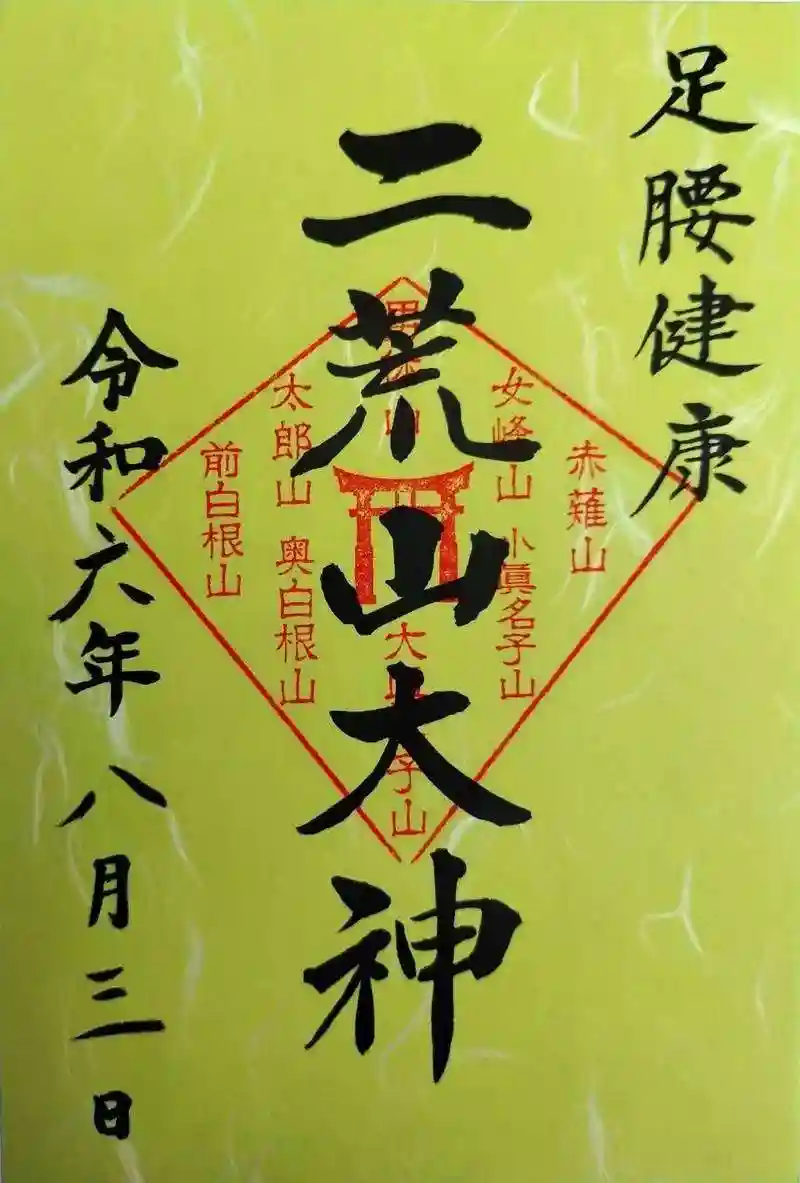 足腰健康
二荒山大神
令和六年八月三日
赤薙山
女峰山 小眞名子山
太郎山 奥白根山
前白根山